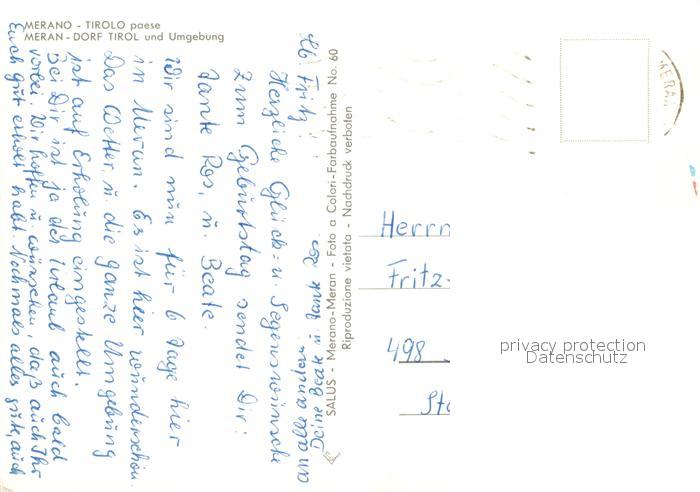 MERANO - TIROLO paese
MERAN - DORF TIROL und Umgebung
Lb. Fritz!
Herzliche Glück- u. Segenswünsche
zum Geburtstag sendet Dir:
Tante Ros, u. Beate.
Wir sind nun für 6 Tage hier
in Meran. Es ist hier wunderschön.
Das Wetter u. die ganze Umgebung
ist auf Erholung eingestellt.
Bei Dir ist ja der Urlaub auch bald
vorbei. Wir hoffen u. wünschen, daß auch Ihr
Euch gut erholt habt. Nochmals alles gute, auch
an
Deine Beate u. Tante Ros
SALUS - Merano-Meran - Foto a Colori-Farbaufnahme No. 60
Riproduzione vietata - Nachdruck verboten
MERAN
Herrn
Fritz
498
privacy protection
Datenschutz